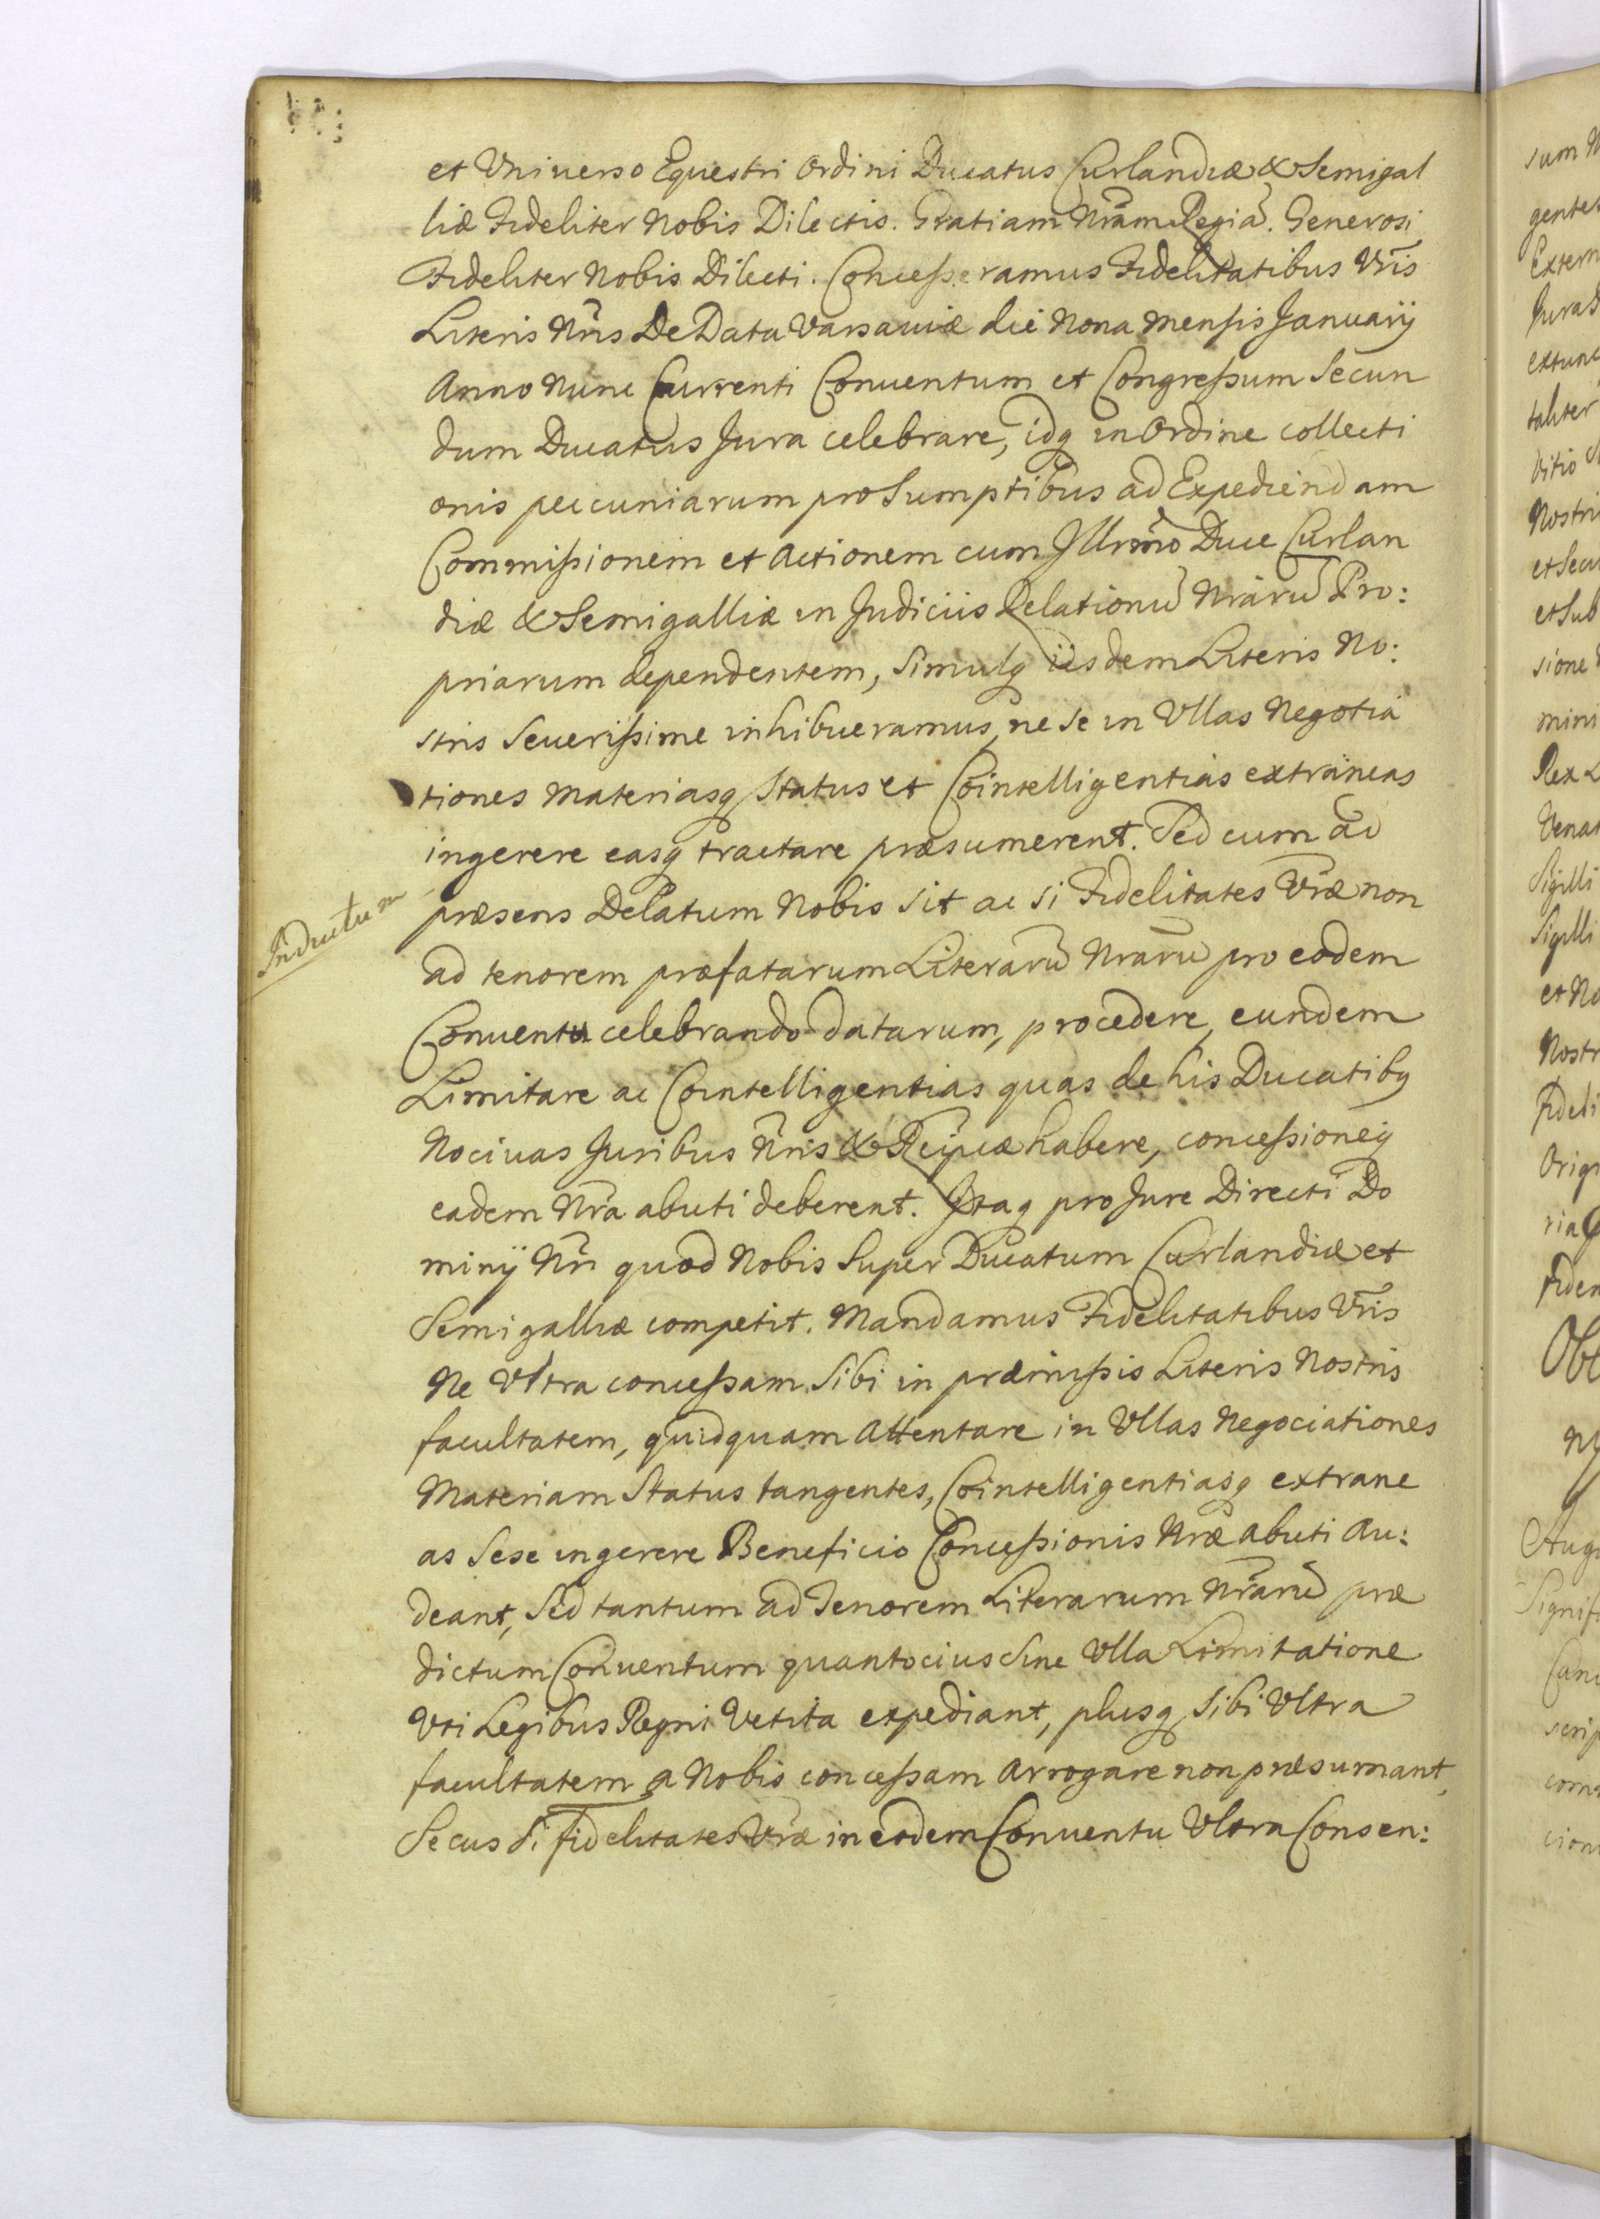 et Vniuerso Equestri Ordini Ducatus Curlandiæ & Semigal
liæ Fideliter Nobis Dilectis. Gratiam Nram Regiã. Generosi
Fideliter Nobis Dilecti. Concesseramus Fidelitatibus Vris
Literis Nris De Data Varsauiæ die Nona mensis Januarij
Anno Nunc Currenti Conuentum et Congressum Secun
dum Ducatus Jura celebrare, idq in Ordine collecti
onis peccuniarum pro Sumptibus ad Expediendam
Commissionem et Actionem cum Illrmo Duce Curlan
diæ & Semigalliæ in Judiciis Relationũ Nrarũ Pro:
priarum dependentem, Simulq iisdem Literis No:
stris Seuerissime inhibueramus, ne se in Vllas Negotia
tiones Materiasq Status et Cointelligentias extraneas
ingerere easq tractare præsumerent. Sed cum ad
præsens Delatum Nobis sit ac si Fidelitates Vræ non
Inductum
ad tenorem præfatarum Literarũ Nrarũ pro eodem
Conuentu celebrando datarum, procedere, eundem
Limitare ac Cointelligentias quas de his Ducatibq
Nociuas Juribus Nris & Reipcæ habere, concessioneq
eadem Nra abuti deberent. Itaq pro Jure Directi Do
minij Nri quod Nobis Super Ducatum Curlandiæ et
Semigalliæ competit. Mandamus Fidelitatibus Vris
Ne Vltra concessam Sibi in præmissis Literis Nostris
facultatem, quidquam Attentare in Vllas Negociationes
Materiam Status tangentes, Cointelligentiasq extrane
as Sese ingerere Beneficio Concessionis Nræ abuti Au:
deant, Sed tantum ad Tenorem Literarum Nrarũ præ
dictum Conuentum quantocius Sine Vlla Limitatione
Vti Legibus Regni Vetita expediant, plusq Sibi Vltra
facultatem a Nobis concessam Arrogare non præsumant,
Secus Si fidelitates Vræ in eodem Conuentu Vltra Consen: